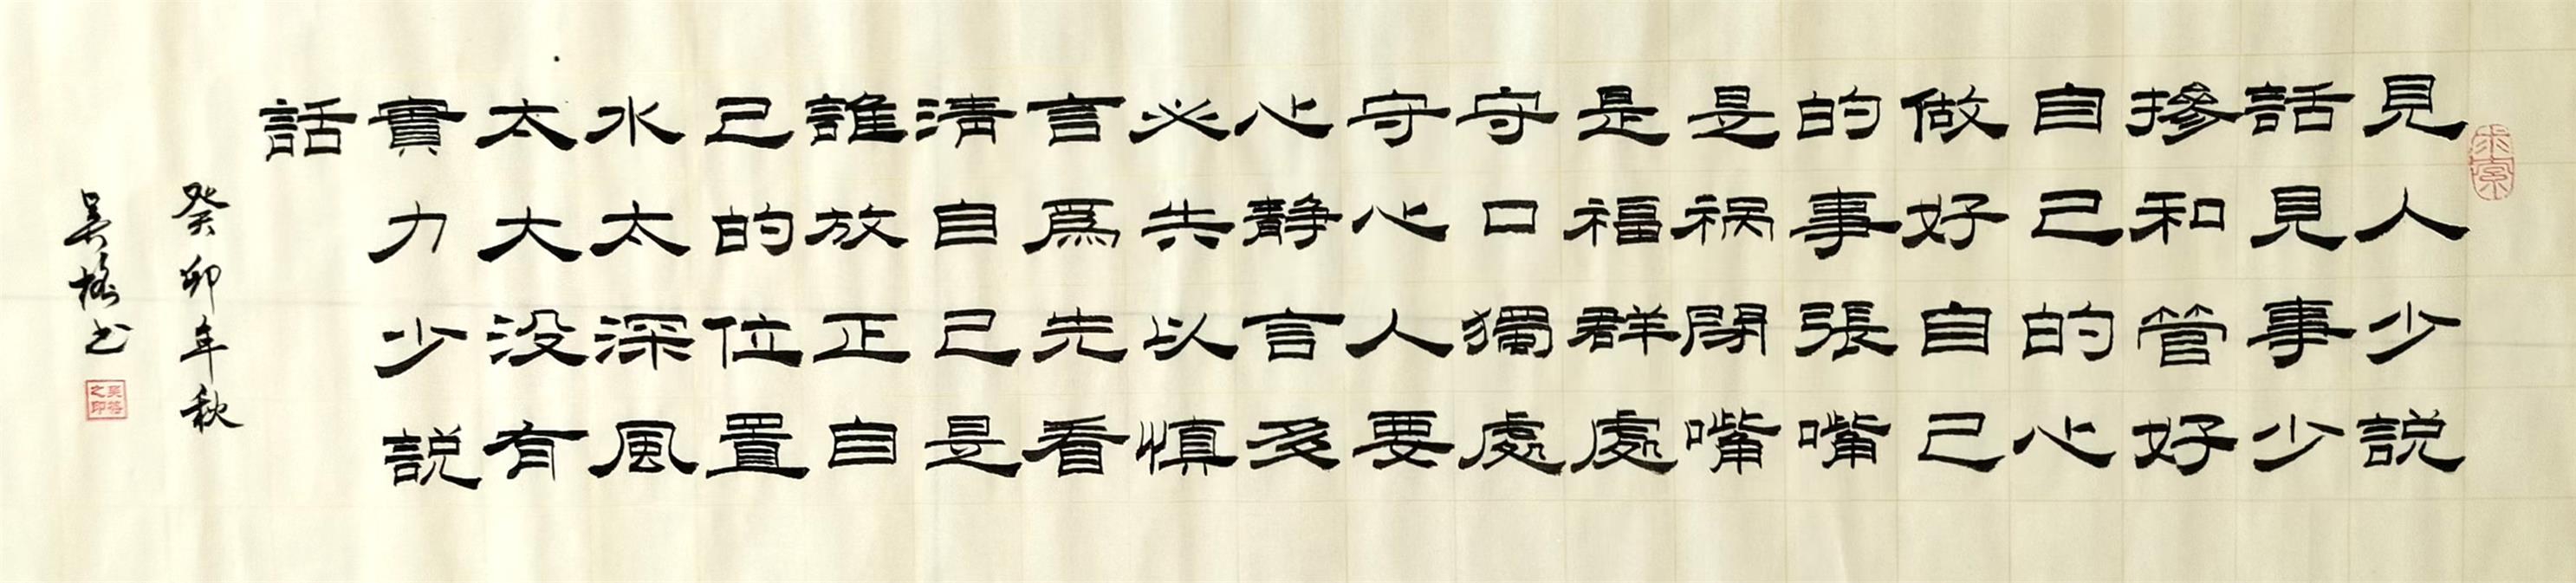 求索
見人少説
話見事少
掺和管好
自己的心
做好自己
的事張嘴
是祸閉嘴
是福群處
守口獨處
守心人要
心静言多
必失以慎
言爲先看
清自己是
誰放正自
己的位置
水太深風
太大没有
實力少説
話
癸卯年秋
吴书